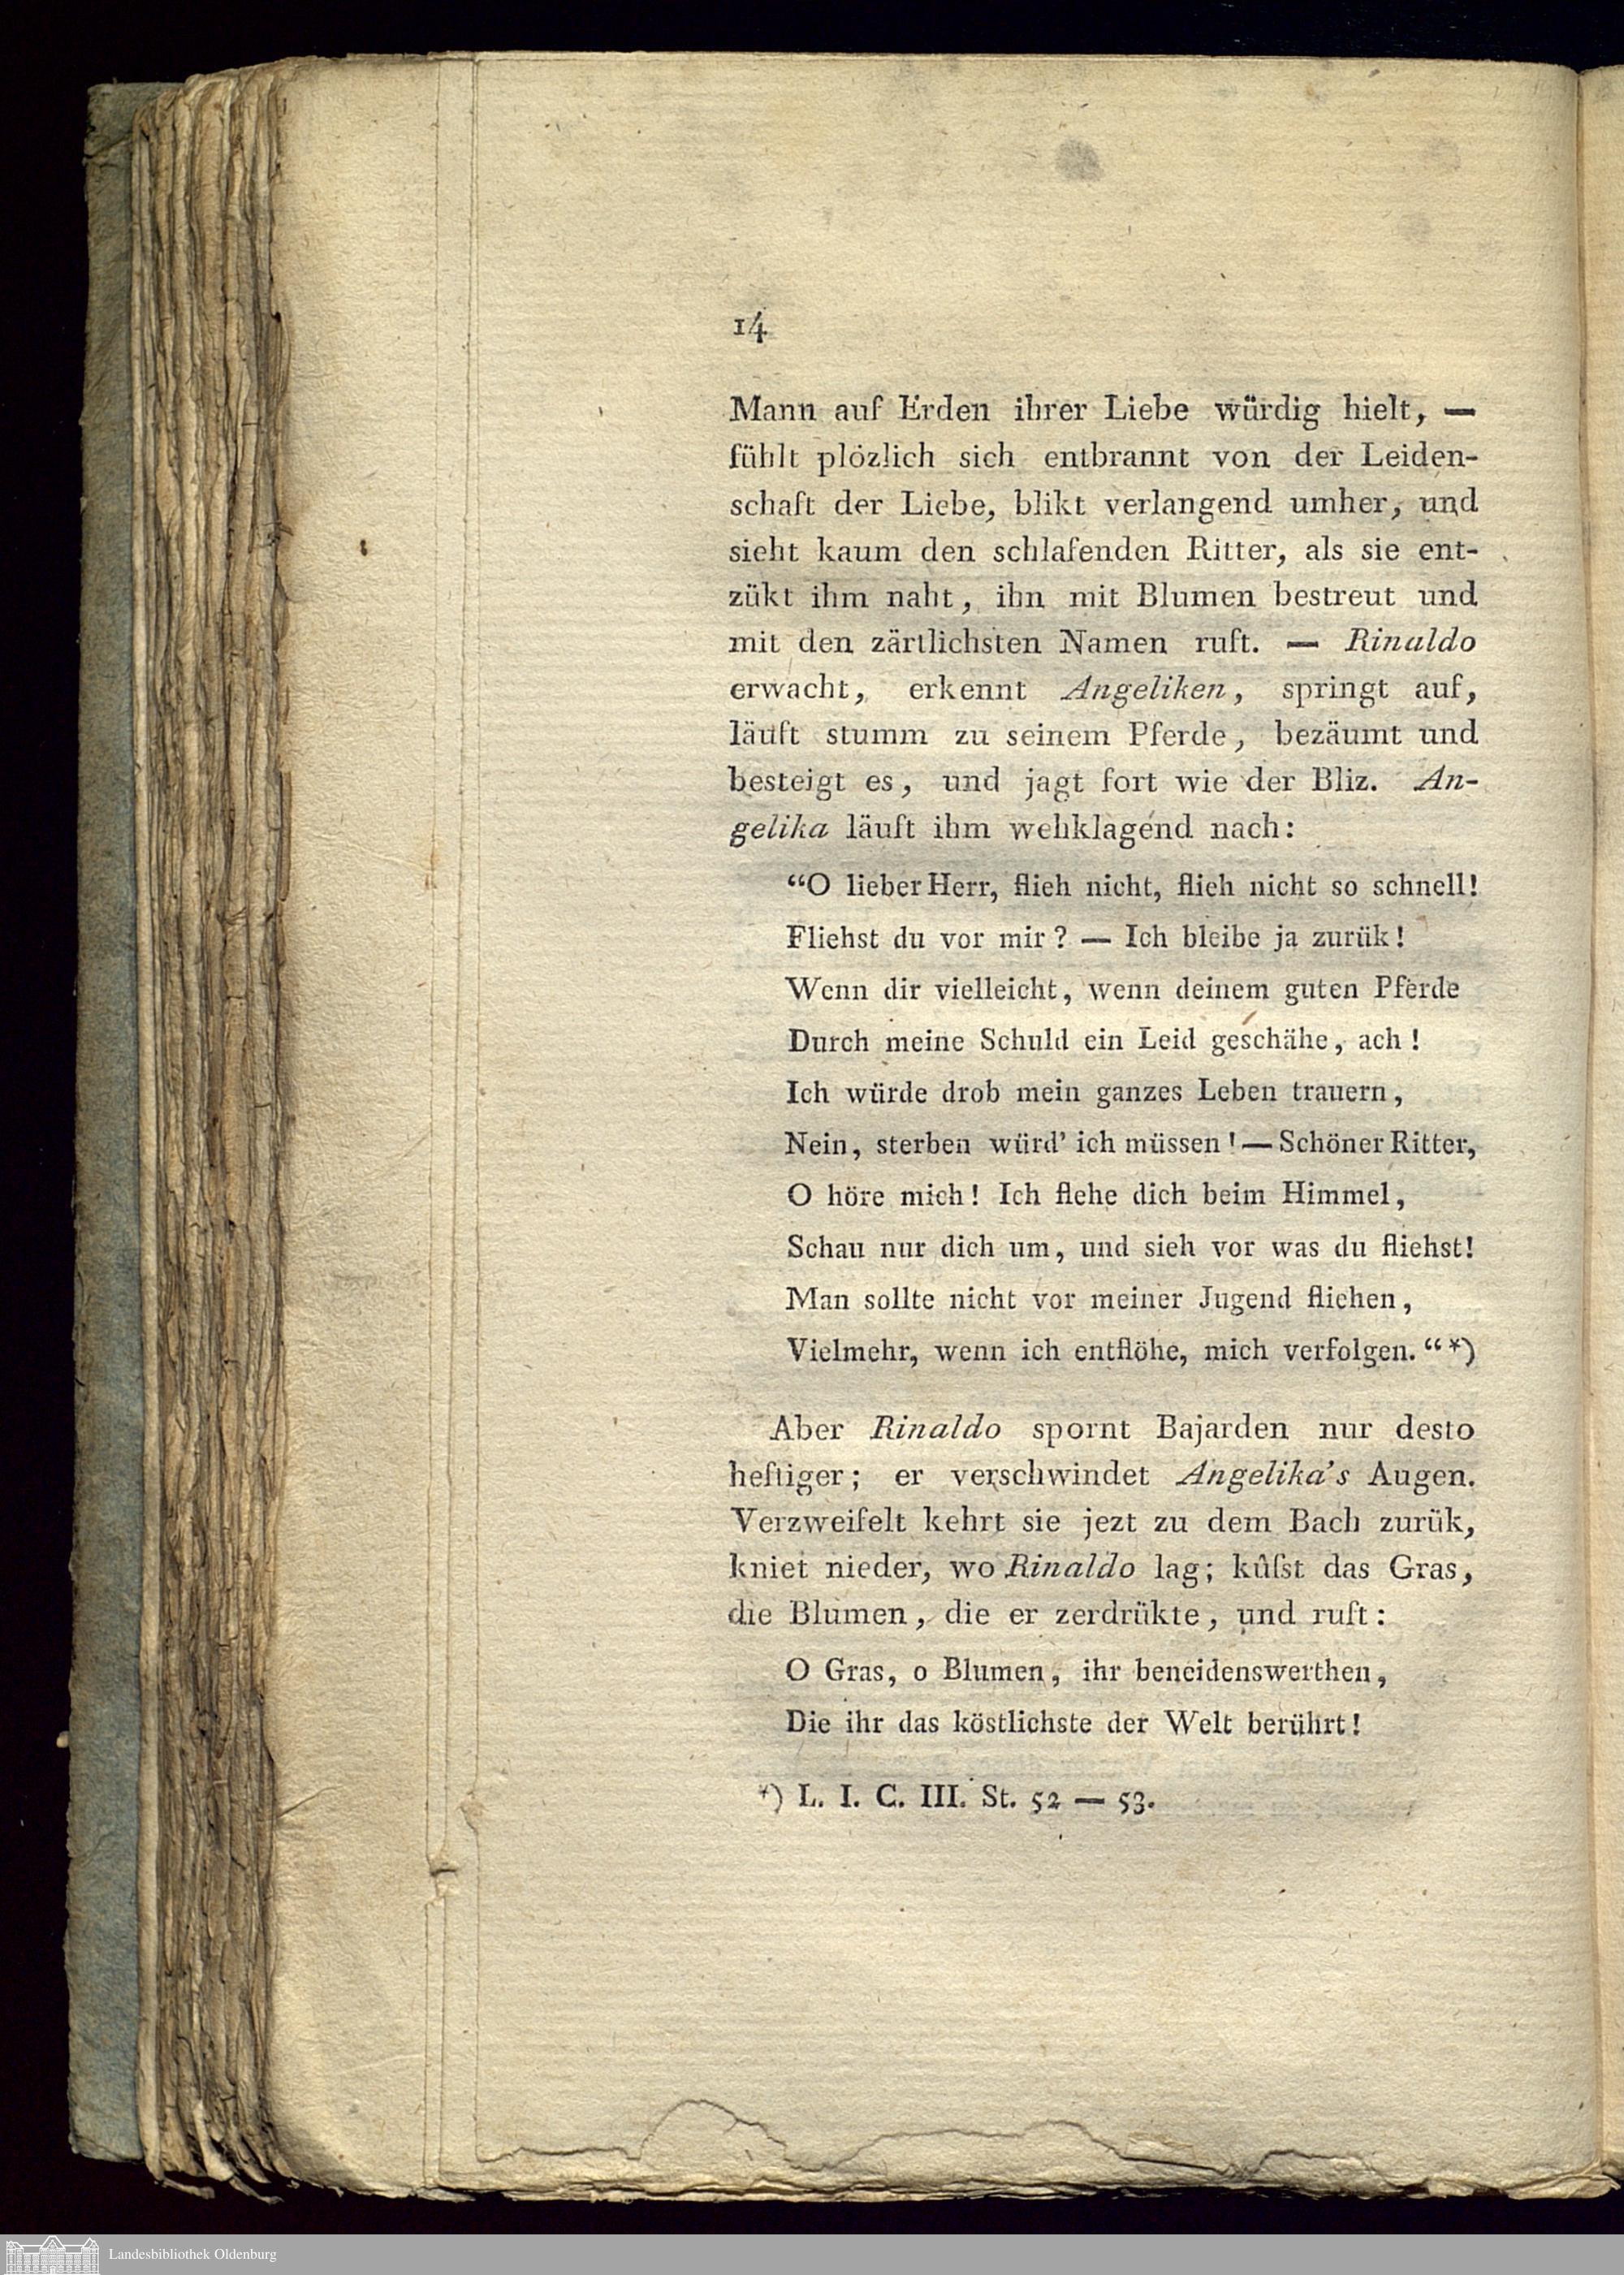 14
Mann auf Erden ihrer Liebe würdig hielt, —
fühlt plözlich sich entbrannt von der Leiden-
schaft der Liebe, blikt verlangend umher, und
sieht kaum den schlafenden Ritter, als sie ent-
zükt ihm naht, ihn mit Blumen bestreut und
mit den zärtlichsten Namen ruft. — Rinaldo
erwacht, erkennt Angeliken, springt auf,
läuft stumm zu seinem Pferde, bezäumt und
besteigt es, und jagt fort wie der Bliz. An-
gelika läuft ihm wehklagend nach:
“O lieber Herr, flieh nicht, flieh nicht so schnell!
Fliehst du vor mir? — Ich bleibe ja zurük!
Wenn dir vielleicht, wenn deinem guten Pferde
Durch meine Schuld ein Leid geschähe, ach!
Ich würde drob mein ganzes Leben trauern,
Nein, sterben würd’ ich müssen! — Schöner Ritter,
O höre mich! Ich flehe dich beim Himmel,
Schau nur dich um, und sieh vor was du fliehst!
Man sollte nicht vor meiner Jugend fliehen,
Vielmehr, wenn ich entflöhe, mich verfolgen.“*)
Aber Rinaldo spornt Bajarden nur desto
heftiger; er verschwindet Angelika’s Augen.
Verzweifelt kehrt sie jezt zu dem Bach zurük,
kniet nieder, wo Rinaldo lag; kûſst das Gras,
die Blumen, die er zerdrükte, und ruft:
O Gras, o Blumen, ihr beneidenswerthen,
Die ihr das köstlichste der Welt berührt!
*) L. I. C. III. St. 52 — 53.
Landesbibliothek Oldenburg